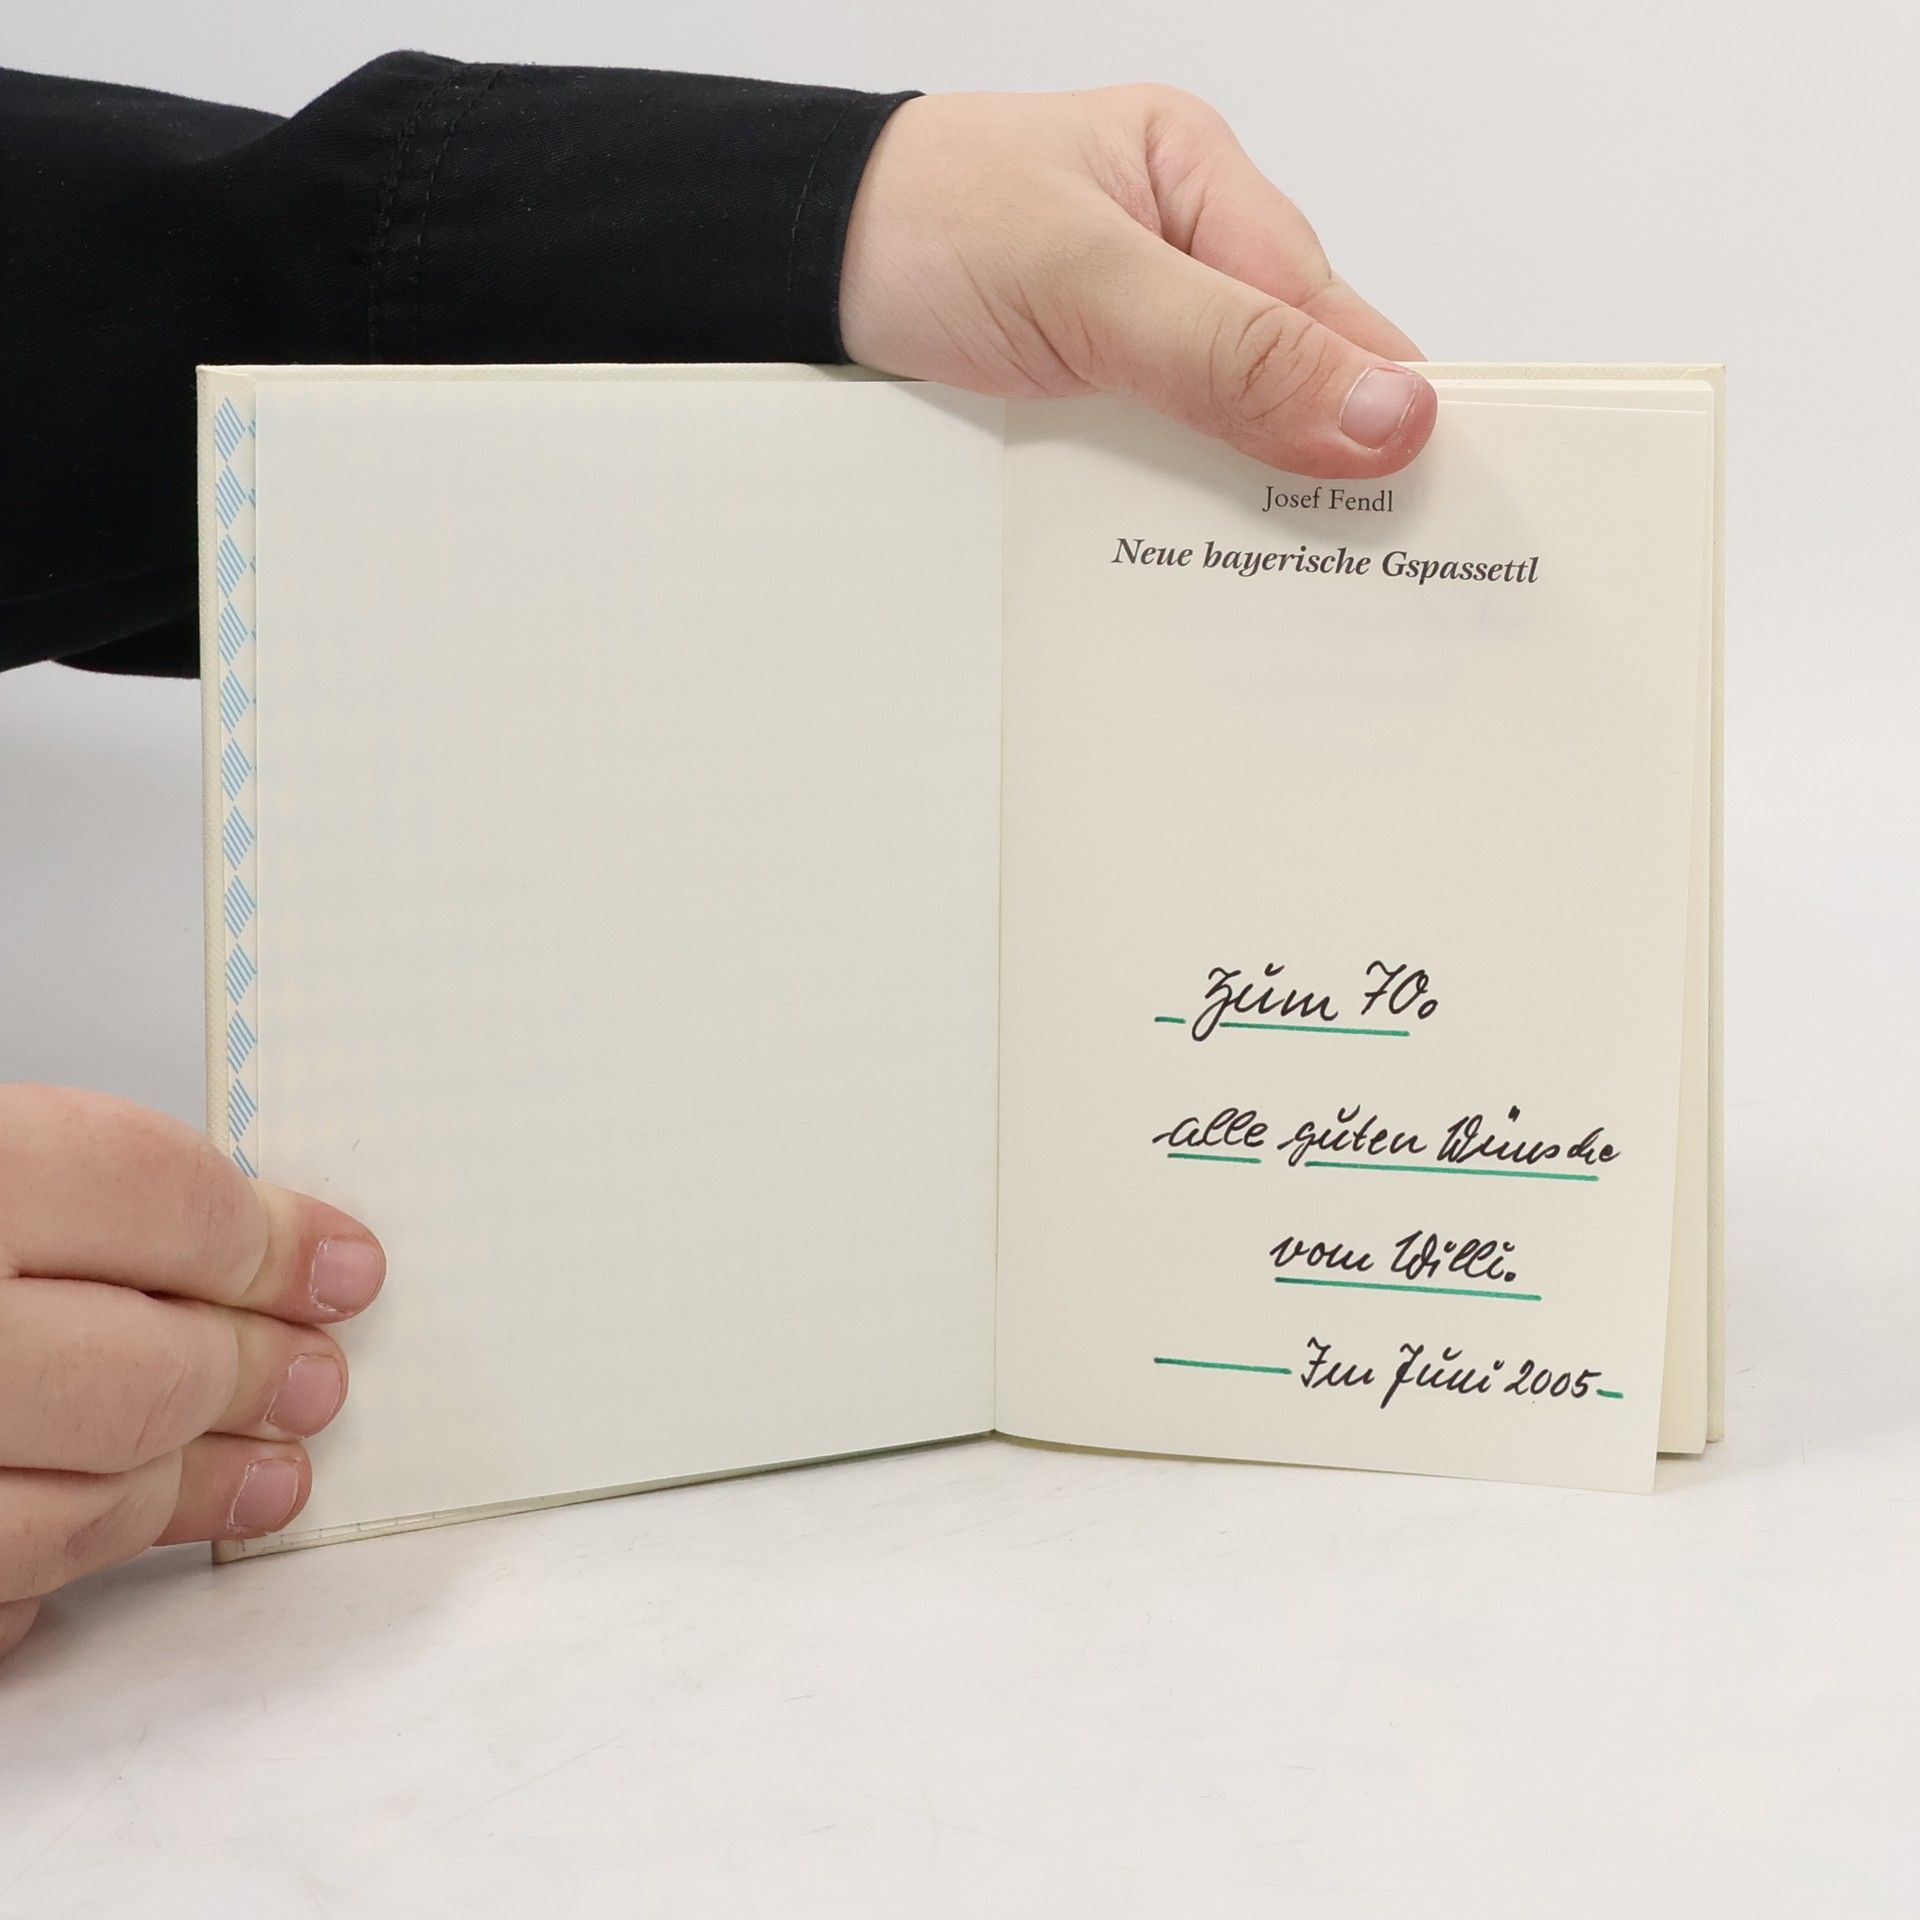 Josef Fendl
Neue bayerische Gspassettl
Zum 70.
alle guten Wünsche
vom Willi.
Im Juni 2005